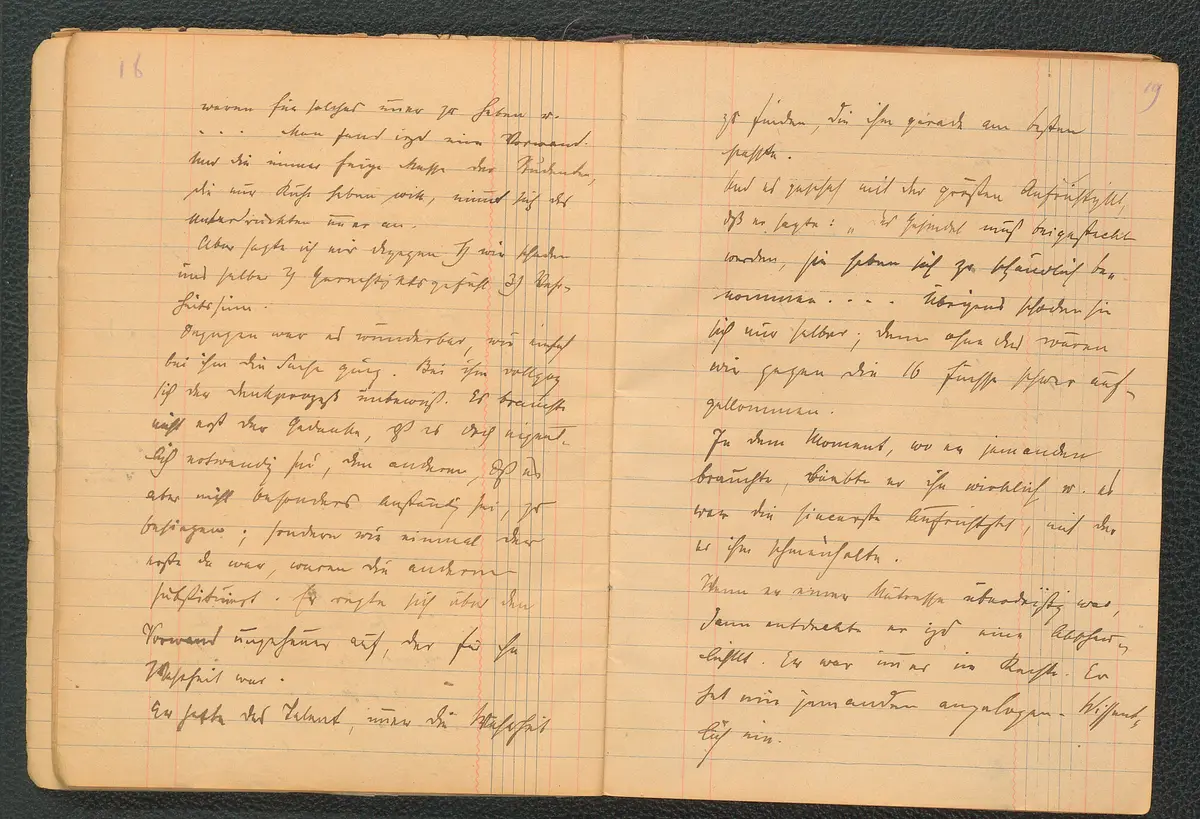 18
waren für solches immer zu haben u.
. . . . Man fand irgd eine Vorwand.
Nur die immer feige Masse der Studenten,
die nur Ruhe haben will, nimmt sich des
unterdrückten immer an.
Aber sagte ich mir dagegen 1) wir schaden
uns selber 2) Gerechtigktsgefühl 3) Wahr-
heitssinn.
Dagegen war es wunderbar, wie einfach
bei ihm die Sache ging. Bei ihm vollzog
sich der Denkprozeß unbewußt. Es brauchte
nicht erst der Gedanke, dß es doch eigent-
lich notwendig sei, den anderen, dß es
aber nicht besonders anständig sei, zu
besiegen; sondern wie einmal der
erste da war, waren die anderen
substituiert. Er regte sich über den
Vorwand ungeheuer auf, der für ihn
Wahrheit war.
Er hatte das Talent, immer die Wahrheit
19
zu finden, die ihm gerade am besten
passte.
Und es geschah mit der größten Aufrichtigkt,
dß er sagte: „das Gesindel muß beigesteckt
werden, sie haben sich zu schändlich be-
nommen. . . . Übrigens schaden sie
sich nur selber; denn ohne das wären
wir gegen die 16 Füchse schwer auf-
gekommen.
In dem Moment, wo er jemanden
brauchte, liebte er ihn wirklich u. es
war die sincerste Aufrichtgkt, mit der
er ihm schmeichelte.
Wenn er einer Maitresse überdrüssig war,
dann entdeckte er irgd eine Abscheu-
lichkt. Er war immer im Rechte. Er
hat nie jemanden angelogen. Wissent-
lich nie.